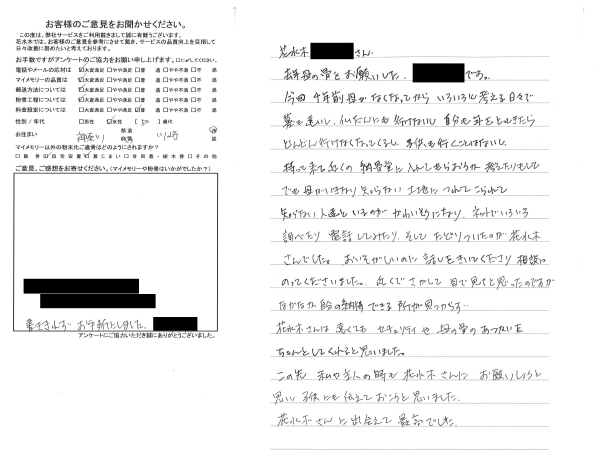 お客様のご意見をお聞かせください。
この度は、弊社サービスをご利用頂きまして誠に有難うございます。
花水木では、お客様のご意見を参考にさせて戴き、サービスの品質向上を目指して
日々改善に努めたいと考えております。
お手数ですがアンケートのご協力をお願い申し上げます。
電話やメールの応対は 大変満足 やや満足 普通 やや不満 不満
マイメモリーの品質は 大変満足 やや満足 普通 やや不満 不満
郵送方法については 大変満足 やや満足 普通 やや不満 不満
粉骨工程については 大変満足 やや満足 普通 やや不満 不満
料金設定については 大変満足 やや満足 普通 やや不満 不満
性別／年代 男性 女性 (50)歳代
お住まい 神奈川
マイメモリー以外の粉末化ご遺骨はどのようにされますか？
散骨 自宅安置 墓じまい 合同墓・樹木葬 その他
ご意見、ご感想をお客せください。(マイメモリーや粉骨はいかがでしたか？)
書ききれず お手紙にしました。
アンケートにご協力いただき誠にありがとうございました。
花水木 さん
去年母の骨をお願いした、 です。
今回 半年前母がなくなってから いろいろと考える日々で
墓も遠いし、仏だんにも行けない 自分も年をとしきたら
どんどん行けなくなってくるし、子供も行くことはない。
持って来て近くの 納骨堂に入れてもらおうか 考えたりまして
でも 母がいきなり 知らない 土地に つれて こられて
知らない人達といるのが かわいそうになり、ネットでいろいろ
調べたり 電話してみたり、そして たどりついたのが 花水木
さんでした。おいそがしいのに 話しをきいてくださり 相談に
のってくださいました。近くでさがして 目で見てと思ったのですが
なかなか 自分の納得できる 所が見つからず…
花水木さんは 遠くても セキュリティや 母の骨の あつかいも
ちゃんとしてくれると思いました。
この先 私や主人の時も 花水木さんに お願いしようと
思い 子供にも伝えておこうと思いました。
花水木さんに出会えて 最高でした